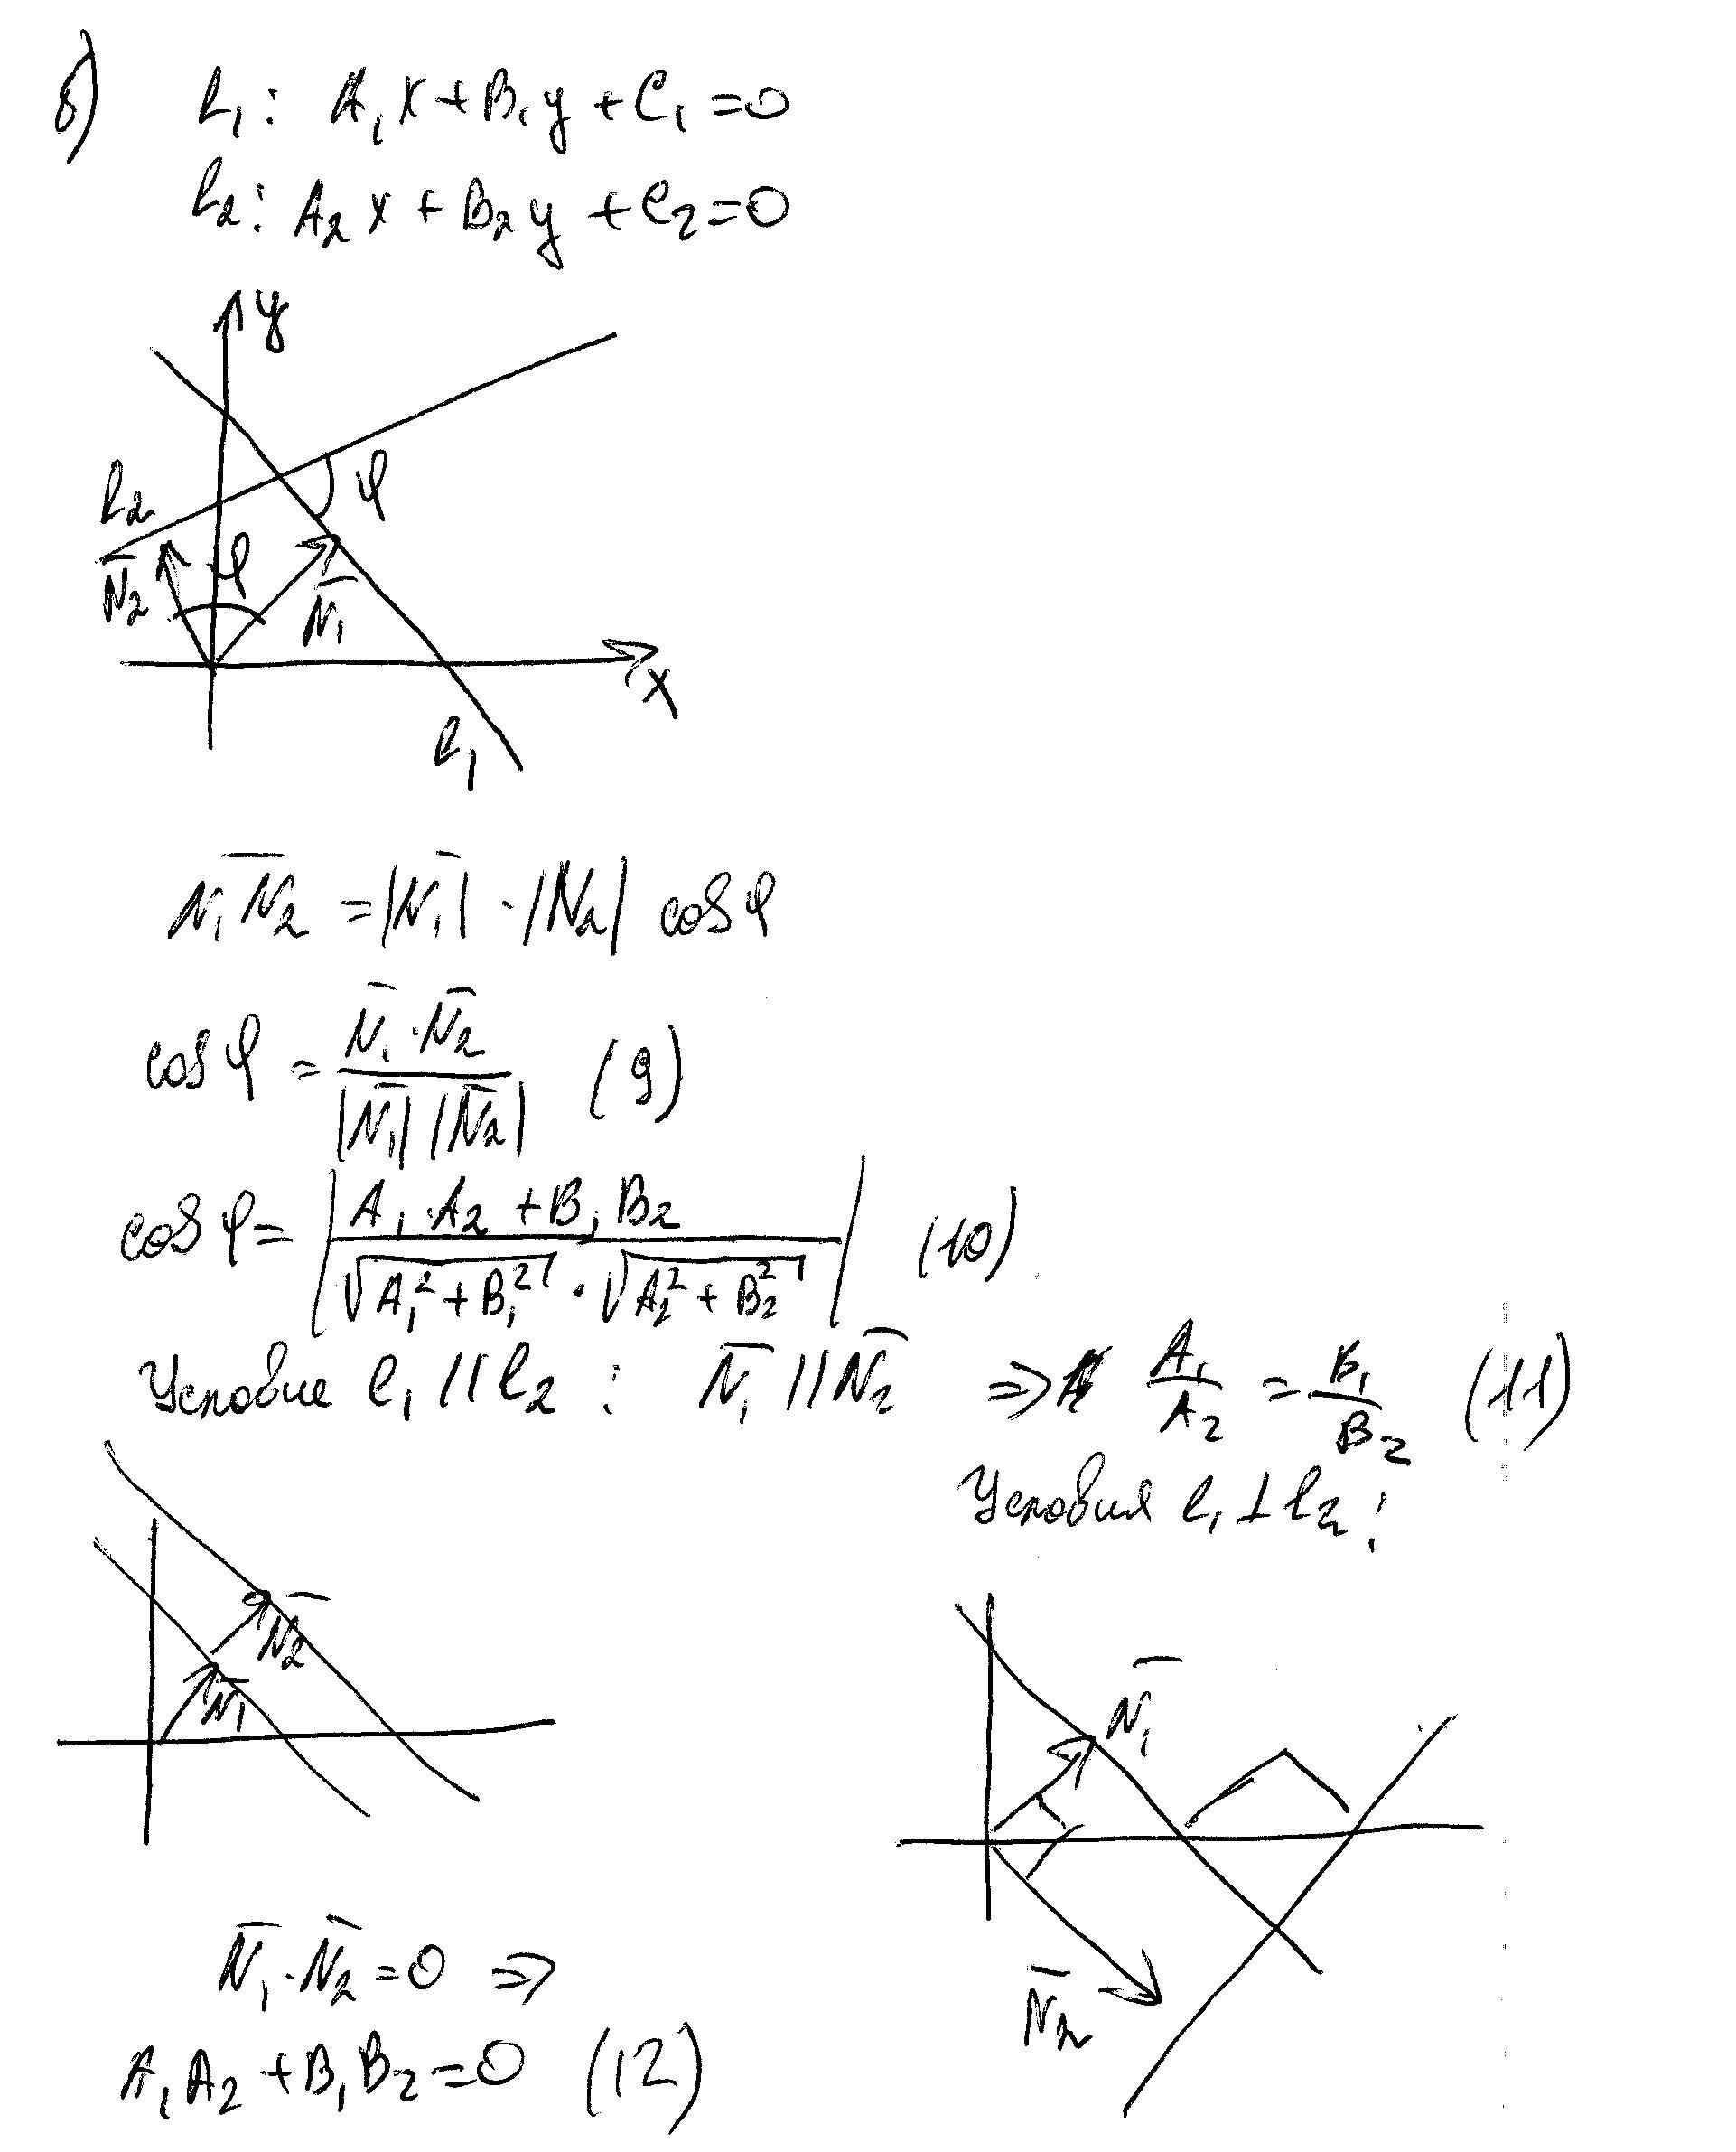 б) l₁: A₁x + B₁y + C₁ = 0
l₂: A₂x + B₂y + C₂ = 0
y
l₂
φ
N̅₂
φ
N̅₁
x
l₁
N₁N̅₂ = |N̅₁| · |N₂| cos φ
cos φ = (N̅₁ · N̅₂) / (|N̅₁| |N̅₂|) (9)
cos φ = | (A₁ · A₂ + B₁B₂) / (√(A₁² + B₁²) · √(A₂² + B₂²)) | (10)
Условие l₁ || l₂ : N̅₁ || N̅₂ ⇒ A₁/A₂ = B₁/B₂ (11)
Условия l₁ ⊥ l₂ :
N̅₂
N̅₁
N̅₁
N̅₂
N̅₁ · N̅₂ = 0 ⇒
A₁A₂ + B₁B₂ = 0 (12)